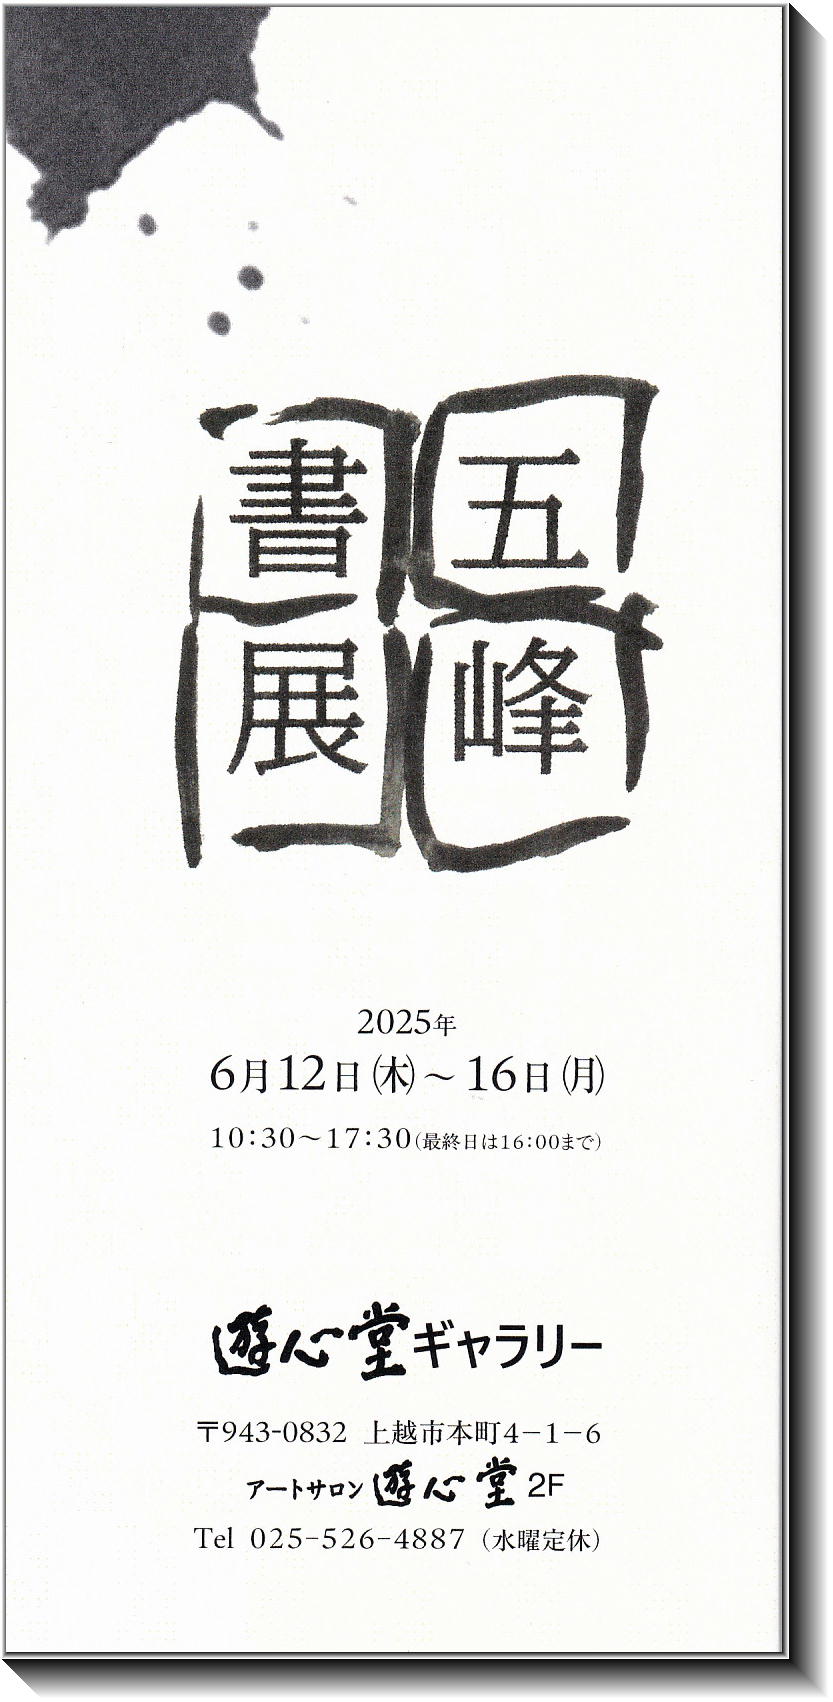 五峰
書展
2025年
6月12日(木)～16日(月)
10:30～17:30(最終日は16:00まで)
遊心堂ギャラリー
〒943-0832 上越市本町4−1−6
アートサロン 遊心堂 2F
Tel 025-526-4887 (水曜定休)